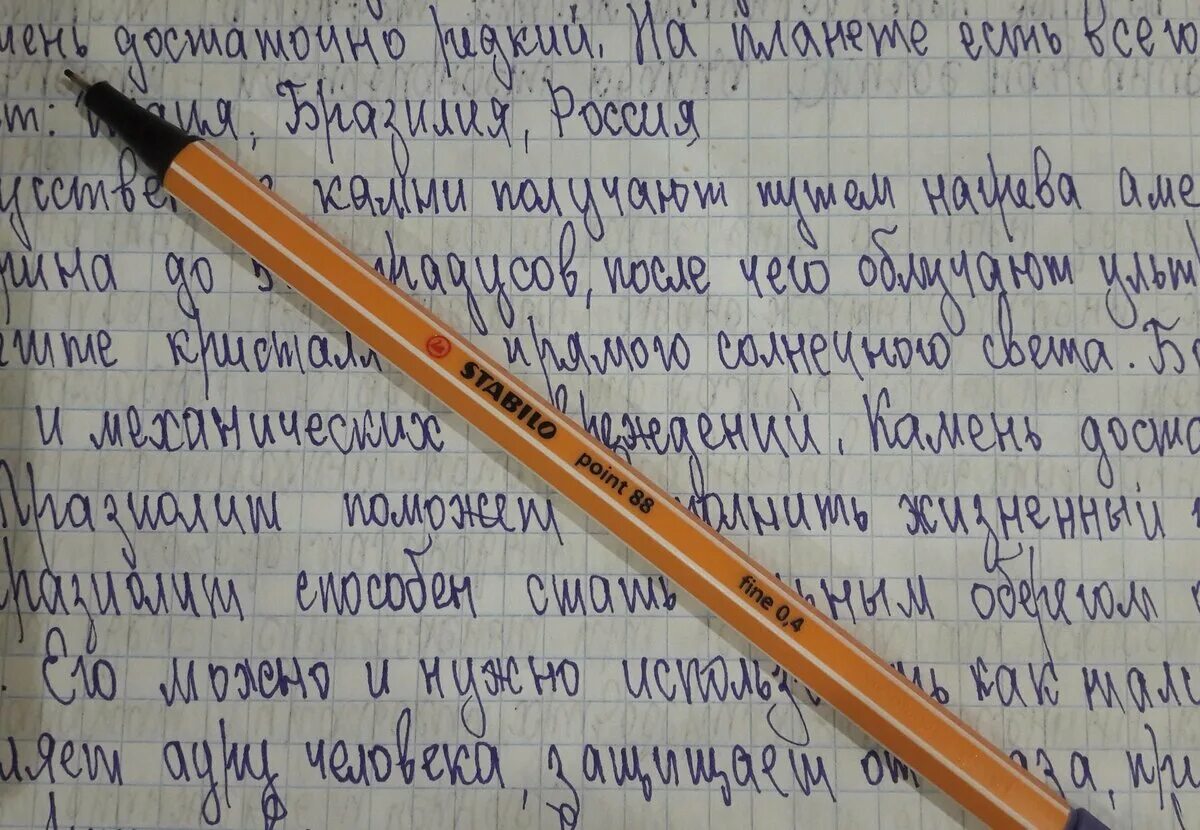 мень достаточно редкий. На планете есть всего
ст: Бразилия, Россия
усственные камни получают путем нагрева аме
до градусов, после чего облучают ульт
кристалл прямого солнечного света. Бе
и механических повреждений. Камень доста
Празиолит поможет жизненный
празиолит способен стать сильным оберегом
Его можно и нужно использовать как тали
ляет ауру человека, защищает от сглаза, при
STABILO
point 88
fine 0,4